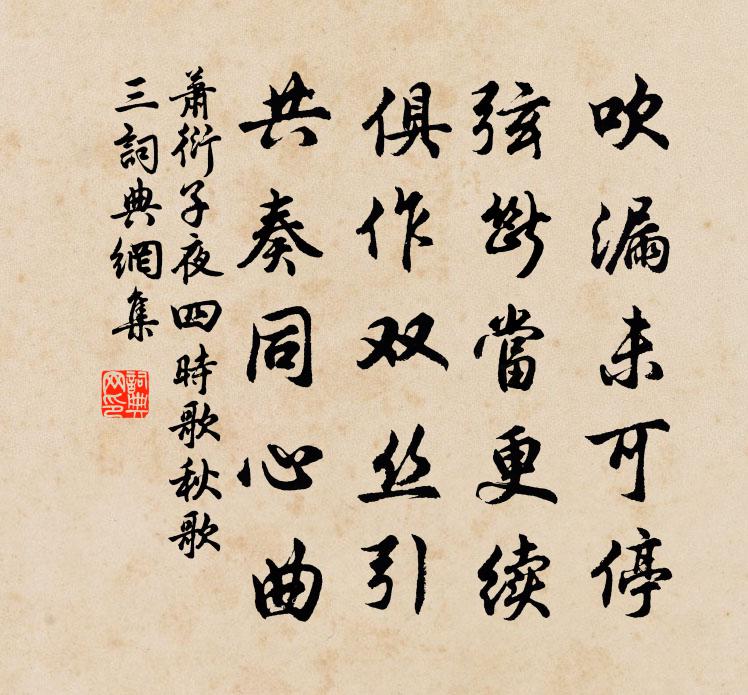 吹漏未可停
弦斷當更续
俱作双丝引
共奏同心曲
萧衍子夜四時歌秋歌
三詞典網集
詞典
网印